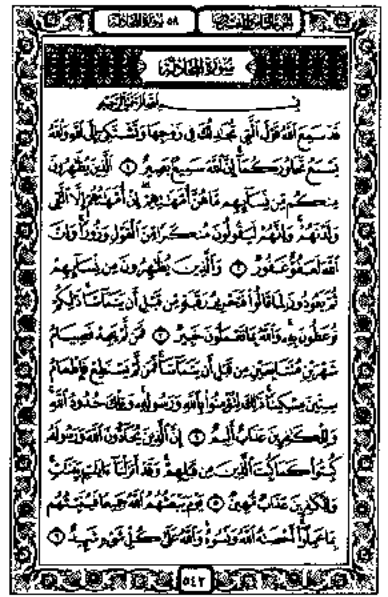 الجزء الثامن والعشرون
٥٨ سورة المجادلة
سُورَةُ المُجَادلة
بِسْمِ اللَّهِ الرَّحْمَٰنِ الرَّحِيمِ
قَدْ سَمِعَ ٱللَّهُ قَوْلَ ٱلَّتِى تُجَٰدِلُكَ فِى زَوْجِهَا وَتَشْتَكِىٓ إِلَى ٱللَّهِ وَٱللَّهُ
يَسْمَعُ تَحَاوُرَكُمَآ إِنَّ ٱللَّهَ سَمِيعٌۢ بَصِيرٌ ١ ٱلَّذِينَ يُظَٰهِرُونَ
مِنكُم مِّن نِّسَآئِهِم مَّا هُنَّ أُمَّهَٰتِهِمْ إِنْ أُمَّهَٰتُهُمْ إِلَّا ٱلَّٰٓـِٔى
وَلَدْنَهُمْ وَإِنَّهُمْ لَيَقُولُونَ مُنكَرًا مِّنَ ٱلْقَوْلِ وَزُورًا وَإِنَّ
ٱللَّهَ لَعَفُوٌّ غَفُورٌ ٢ وَٱلَّذِينَ يُظَٰهِرُونَ مِن نِّسَآئِهِمْ
ثُمَّ يَعُودُونَ لِمَا قَالُوا۟ فَتَحْرِيرُ رَقَبَةٍ مِّن قَبْلِ أَن يَتَمَآسَّا ذَٰلِكُمْ
تُوعَظُونَ بِهِۦ وَٱللَّهُ بِمَا تَعْمَلُونَ خَبِيرٌ ٣ فَمَن لَّمْ يَجِدْ فَصِيَامُ
شَهْرَيْنِ مُتَتَابِعَيْنِ مِن قَبْلِ أَن يَتَمَآسَّا فَمَن لَّمْ يَسْتَطِعْ فَإِطْعَامُ
سِتِّينَ مِسْكِينًا ذَٰلِكَ لِتُؤْمِنُوا۟ بِٱللَّهِ وَرَسُولِهِۦ وَتِلْكَ حُدُودُ ٱللَّهِ
وَلِلْكَٰفِرِينَ عَذَابٌ أَلِيمٌ ٤ إِنَّ ٱلَّذِينَ يُحَآدُّونَ ٱللَّهَ وَرَسُولَهُۥ
كُبِتُوا۟ كَمَا كُبِتَ ٱلَّذِينَ مِن قَبْلِهِمْ وَقَدْ أَنزَلْنَآ ءَايَٰتٍۭ بَيِّنَٰتٍ
وَلِلْكَٰفِرِينَ عَذَابٌ مُّهِينٌ ٥ يَوْمَ يَبْعَثُهُمُ ٱللَّهُ جَمِيعًا فَيُنَبِّئُهُم
بِمَا عَمِلُوٓا۟ أَحْصَىٰهُ ٱللَّهُ وَنَسُوهُ وَٱللَّهُ عَلَىٰ كُلِّ شَىْءٍ شَهِيدٌ ٦
٥٤٢